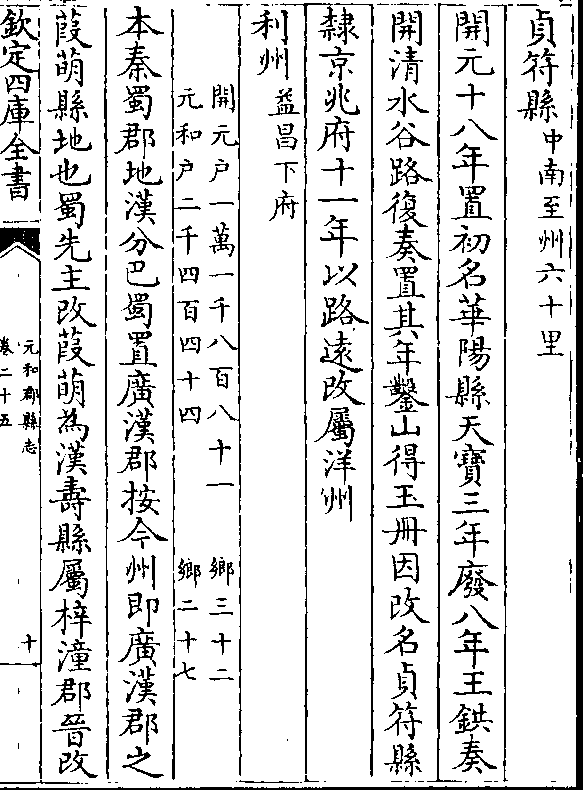 貞符縣中南至州六十里
開元十八年置初名華陽縣天寶三年廢八年王鉷奏
開清水谷路復奏置其年鑿山得玉册因改名貞符縣
隸京兆府十一年以路遠改屬洋州
利州益昌下府
開元户一萬一千八百八十一 鄉三十二
元和户二千四百四十四 鄉二十七
本秦蜀郡地漢分巴蜀置廣漢郡按今州即廣漢郡之
葭萌縣地也蜀先主改葭萌為漢壽縣屬梓潼郡晉改
欽定四庫全書
元和郡縣志
卷二十五
十